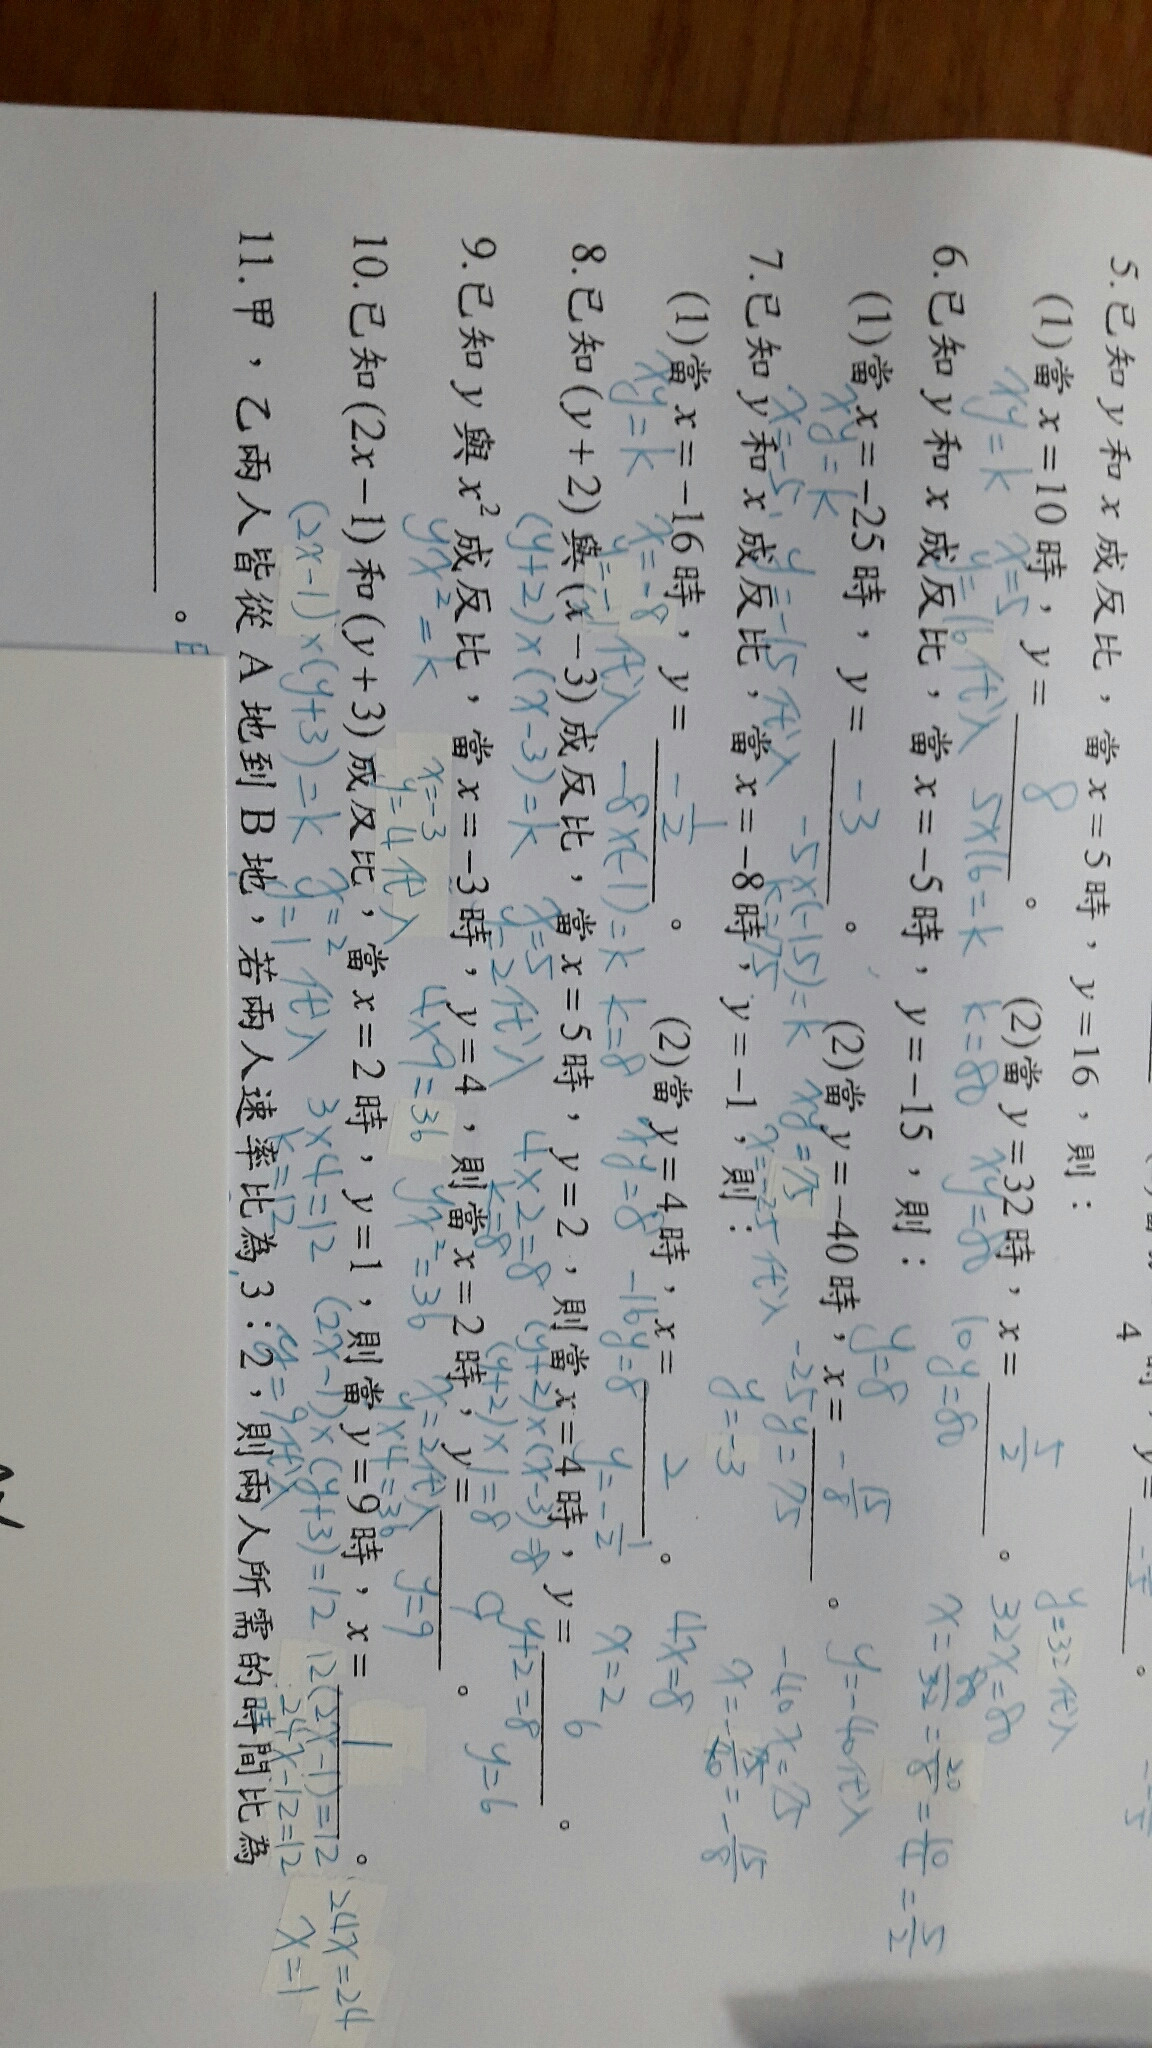 4時，y=
5.已知y和x成反比，當x=5時，y=16，則：
(1)當x=10時，y= 8 。 (2)當y=32時，x= 5/2 。
y=32代入
xy=k x=5 y=16代入 5x16=k k=80 xy=80 10y=80 y=8 32x=80
x=80/32=20/8=10/4=5/2
6.已知y和x成反比，當x=-5時，y=-15，則：
(1)當x=-25時，y= -3 。 (2)當y=-40時，x= -15/8 。
y=-40代入
xy=k x=-5 y=-15代入 -5x(-15)=k k=75 xy=75 x=-25代入 -25y=75 y=-3 -40x=75
x=-75/40=-15/8
7.已知y和x成反比，當x=-8時，y=-1，則：
(1)當x=-16時，y= -1/2 。 (2)當y=4時，x= 2 。
4x=8
xy=k x=-8 y=-1代入 -8x(-1)=k k=8 xy=8 -16y=8 y=-1/2 x=2
8.已知(y+2)與(x-3)成反比，當x=5時，y=2，則當x=4時，y= 6 。
(y+2)x(x-3)=k x=5 y=2代入 4x2=8 k=8 (y+2)x(x-3)=8 (y+2)x1=8 y+2=8 y=6
9.已知y與x²成反比，當x=-3時，y=4，則當x=2時，y= 9 。
yx²=k x=-3 y=4代入 4x9=36 yx²=36 x=2代入 yx4=36 y=9
10.已知(2x-1)和(y+3)成反比，當x=2時，y=1，則當y=9時，x= 1 。
(2x-1)x(y+3)=k x=2 y=1代入 3x4=12 k=12 (2x-1)x(y+3)=12 y=9代入 12(2x-1)=12 24x-12=12 24x=24 x=1
11.甲，乙兩人皆從A地到B地，若兩人速率比為3：2，則兩人所需的時間比為
。